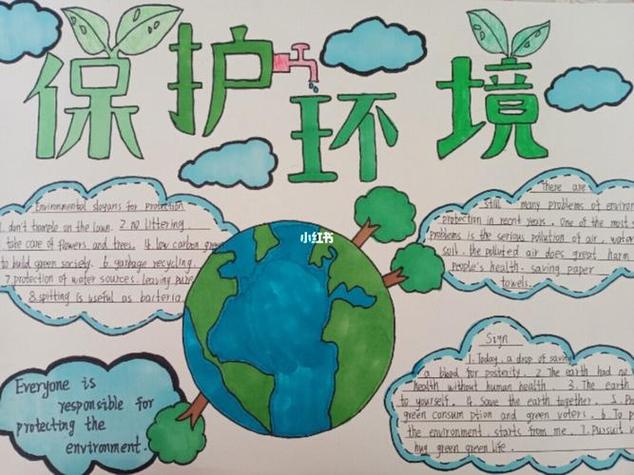 保护环境
小红书
Environmental slogans for protection
1. don't trample on the lawn. 2 no littering.
take care of flowers and trees. 4 low carbon green
to build green society. 6 garbage recycling.
7. protection of water sources. leaving pure
8. spitting is useful as bacteria.
There are
still many problems of environ
protection in recnt years. One of the most
problems is the serious pollution of air, wat
soil. the polluted air does great harm
people's health. saving paper
towels.
Everyone is
responsible for
protecting the
environment.
Sign
1. Today, a drop of saving
a blood for posterity. 2 The earth had no
health without human health. 3. The earth
to yourself. 4 Save the earth together. 5. Pr
green consum ption and green voters. 6 To p
the environment, starts from me. 7. Pursuit
hug green green life.